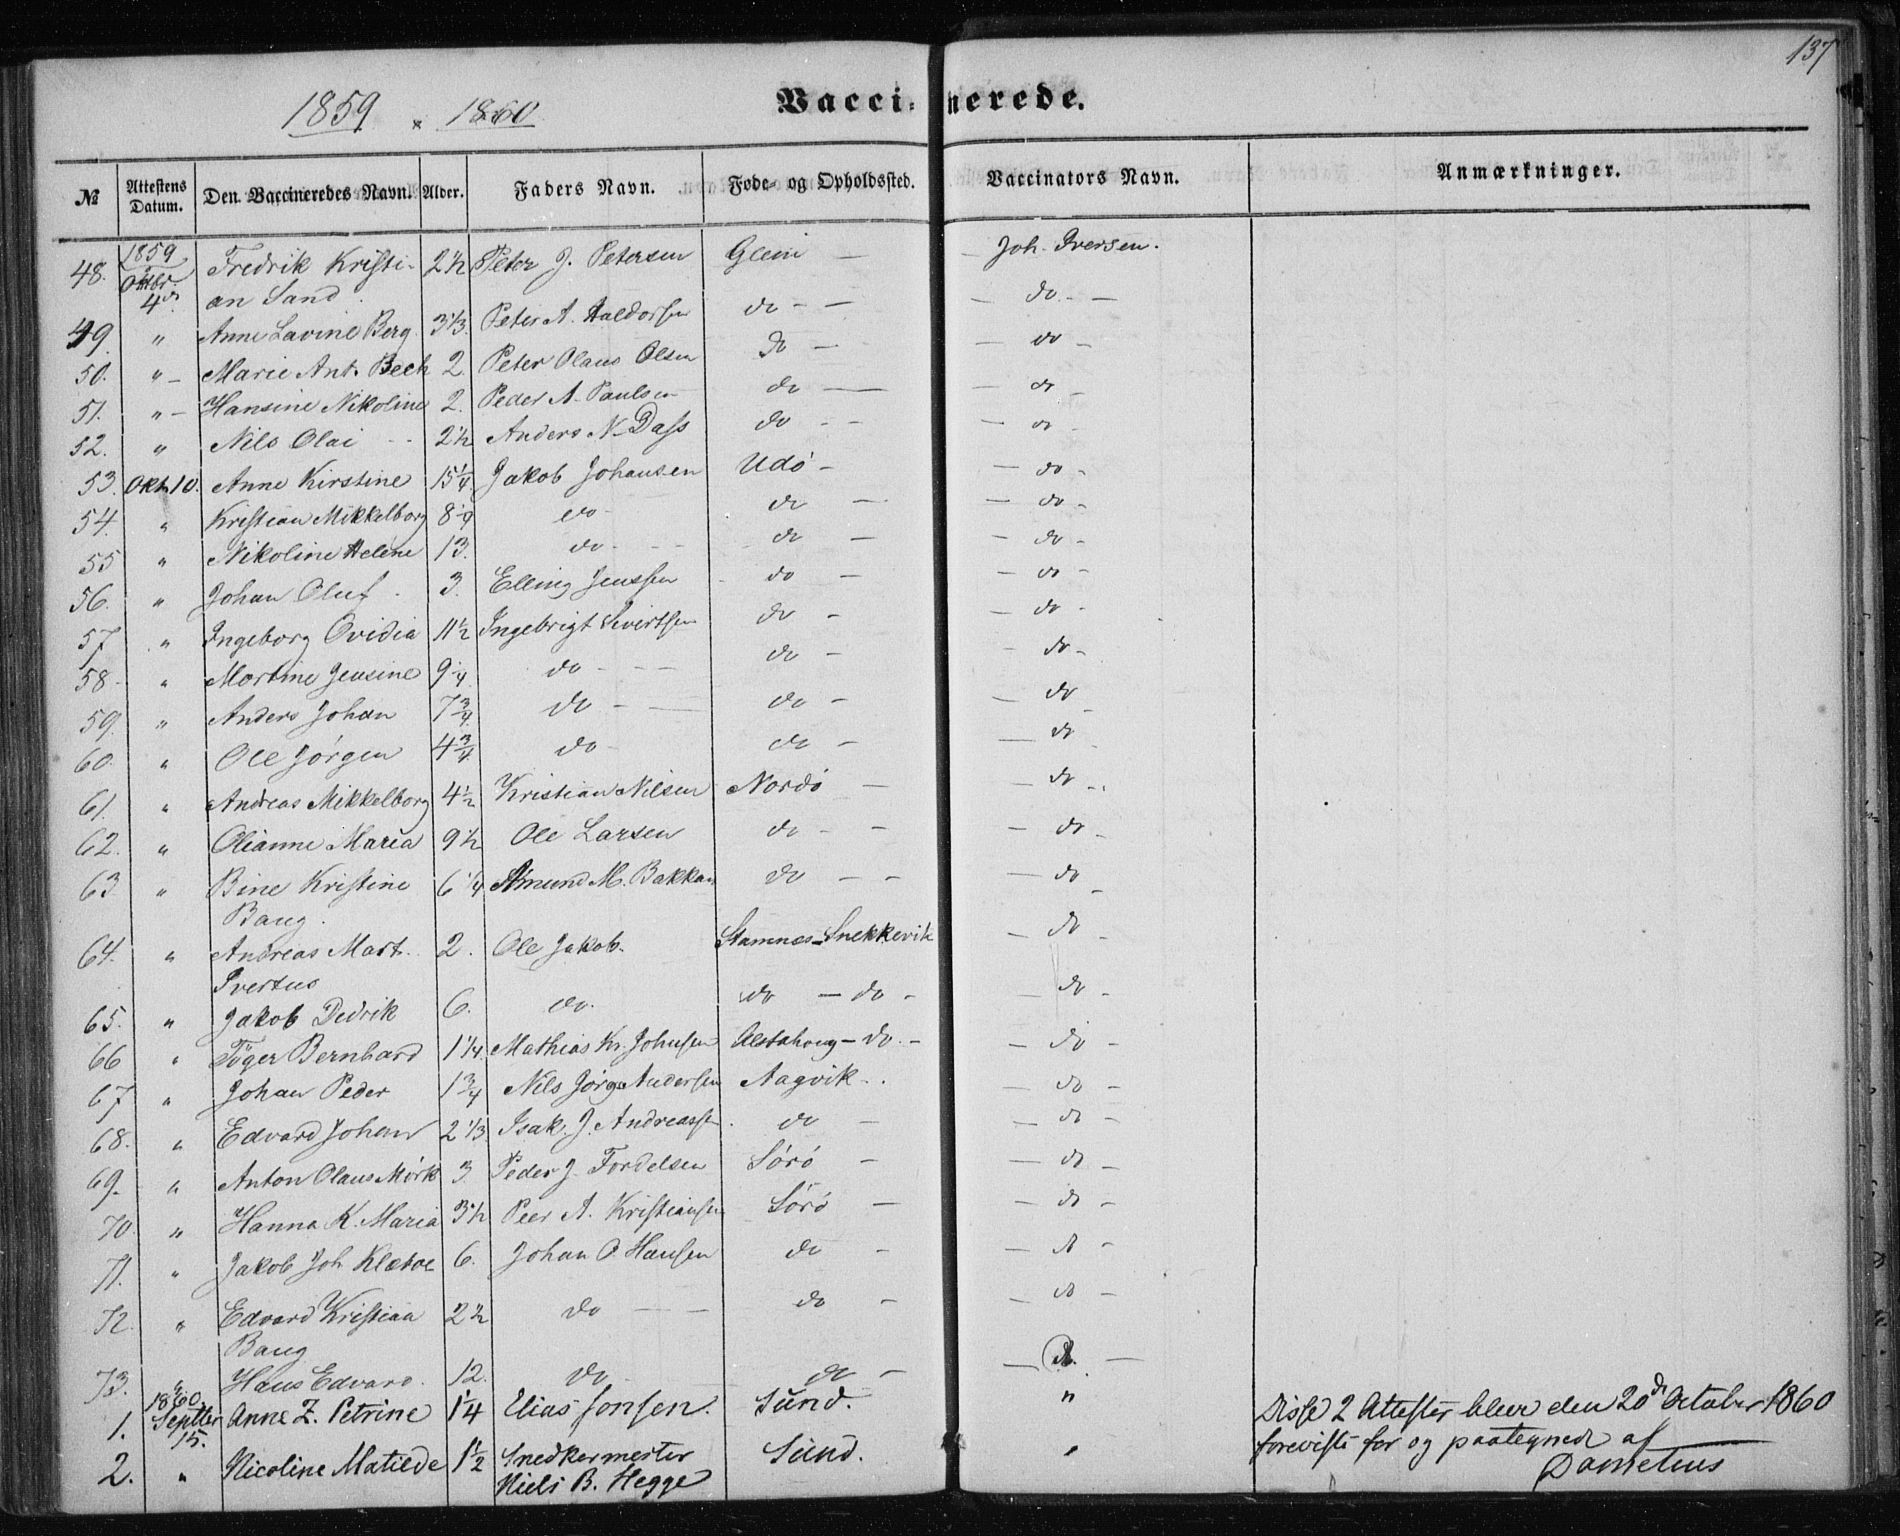 137
1859 " 1860
Vaccinerede.
№ Attestens Datum. Den Vaccineredes Navn. Alder. Faders Navn. Føde- og Opholdssted. Vaccinators Navn. Anmærkninger.
48. 1859 Oktbr. 4de Fredrik Kristi- 2½ Peter J. Petersen Glein — Joh. Iversen.
an Sand.
49. " Anne Lavine Berg 3⅓. Peter A. Haldorsen do - — — do - —
50. " - Marie Ant. Bech 2. Peter Olaus Olsen do — — do -
51. " - Hansine Nikoline 2. Peder A. Paulsen do — — do -
52. " Nils Olai - - 2½ Anders N. Dass do - - — do -
53. Okt. 10. Anne Kirstine 15¼. Jakob Johansen Udö - — do -
54. " Kristian Mikkelborg do - do — — do -
55 " Nikoline Helene 13. do - - do — — do -
56. " Johan Oluf - 3. Elling Jenssen do — — do -
57 " Ingeborg Ovidia 11½ Ingebrigt Sivertsen do - — do -
58 - " Martine Jensine 9¼. do - - - do - - do -
59. " Anders Johan 7¾ do - — do - — do
60. " Ole Jörgen 4¾ do - do - — do -
61. " Andreas Mikkelborg 4½ Kristian Nilsen Nordö — — do -
62. " Olianne Maria 9½ Ole Larsen do - - — do -
63 " Bine Kristine 6¼ Amund M. Bakkan do - - — do -
Baug.
64. " Andreas Mart. 2. Ole Jakob. Stamnes-Snekkevik — do -
Ivertus
65. " Jakob Dedrik 6. do. do — do - — do -
66 " Töger Bernhard 1¼. Mathias Kr. Johnsen Alstahoug - do. - — do -
67 " Johan Peder 1¾ Nils Jörg. Andersen Aagvik - . — do -
68. " Edvard Johan 2⅓. Isak. J. Andreassen. do — — do -
69. " Anton Olaus Mörk 3. Peder J. Tordelsen Sörö — — do -
70 " Hanna K. Maria 3½ Peer A. Kristiansen Sörö — — do -
71. " Jakob Joh. Klæboe 6. Johan O. Hansen do - — do -
72. " Edvard Kristian 2½ do - — - do - — do -
Baug
73. " Hans Edvard. 12. do - do - — do. —
1. 1860 Septbr 15. Anne Z. Petrine 1¼ Elias Jonsen. Sund. " Disse 2 Attester bleve den 20de October 1860
2. " Nicoline Matilde 1½ Snedkermester Sund. " foreviste for og paategnede af
Niels B. Hegge